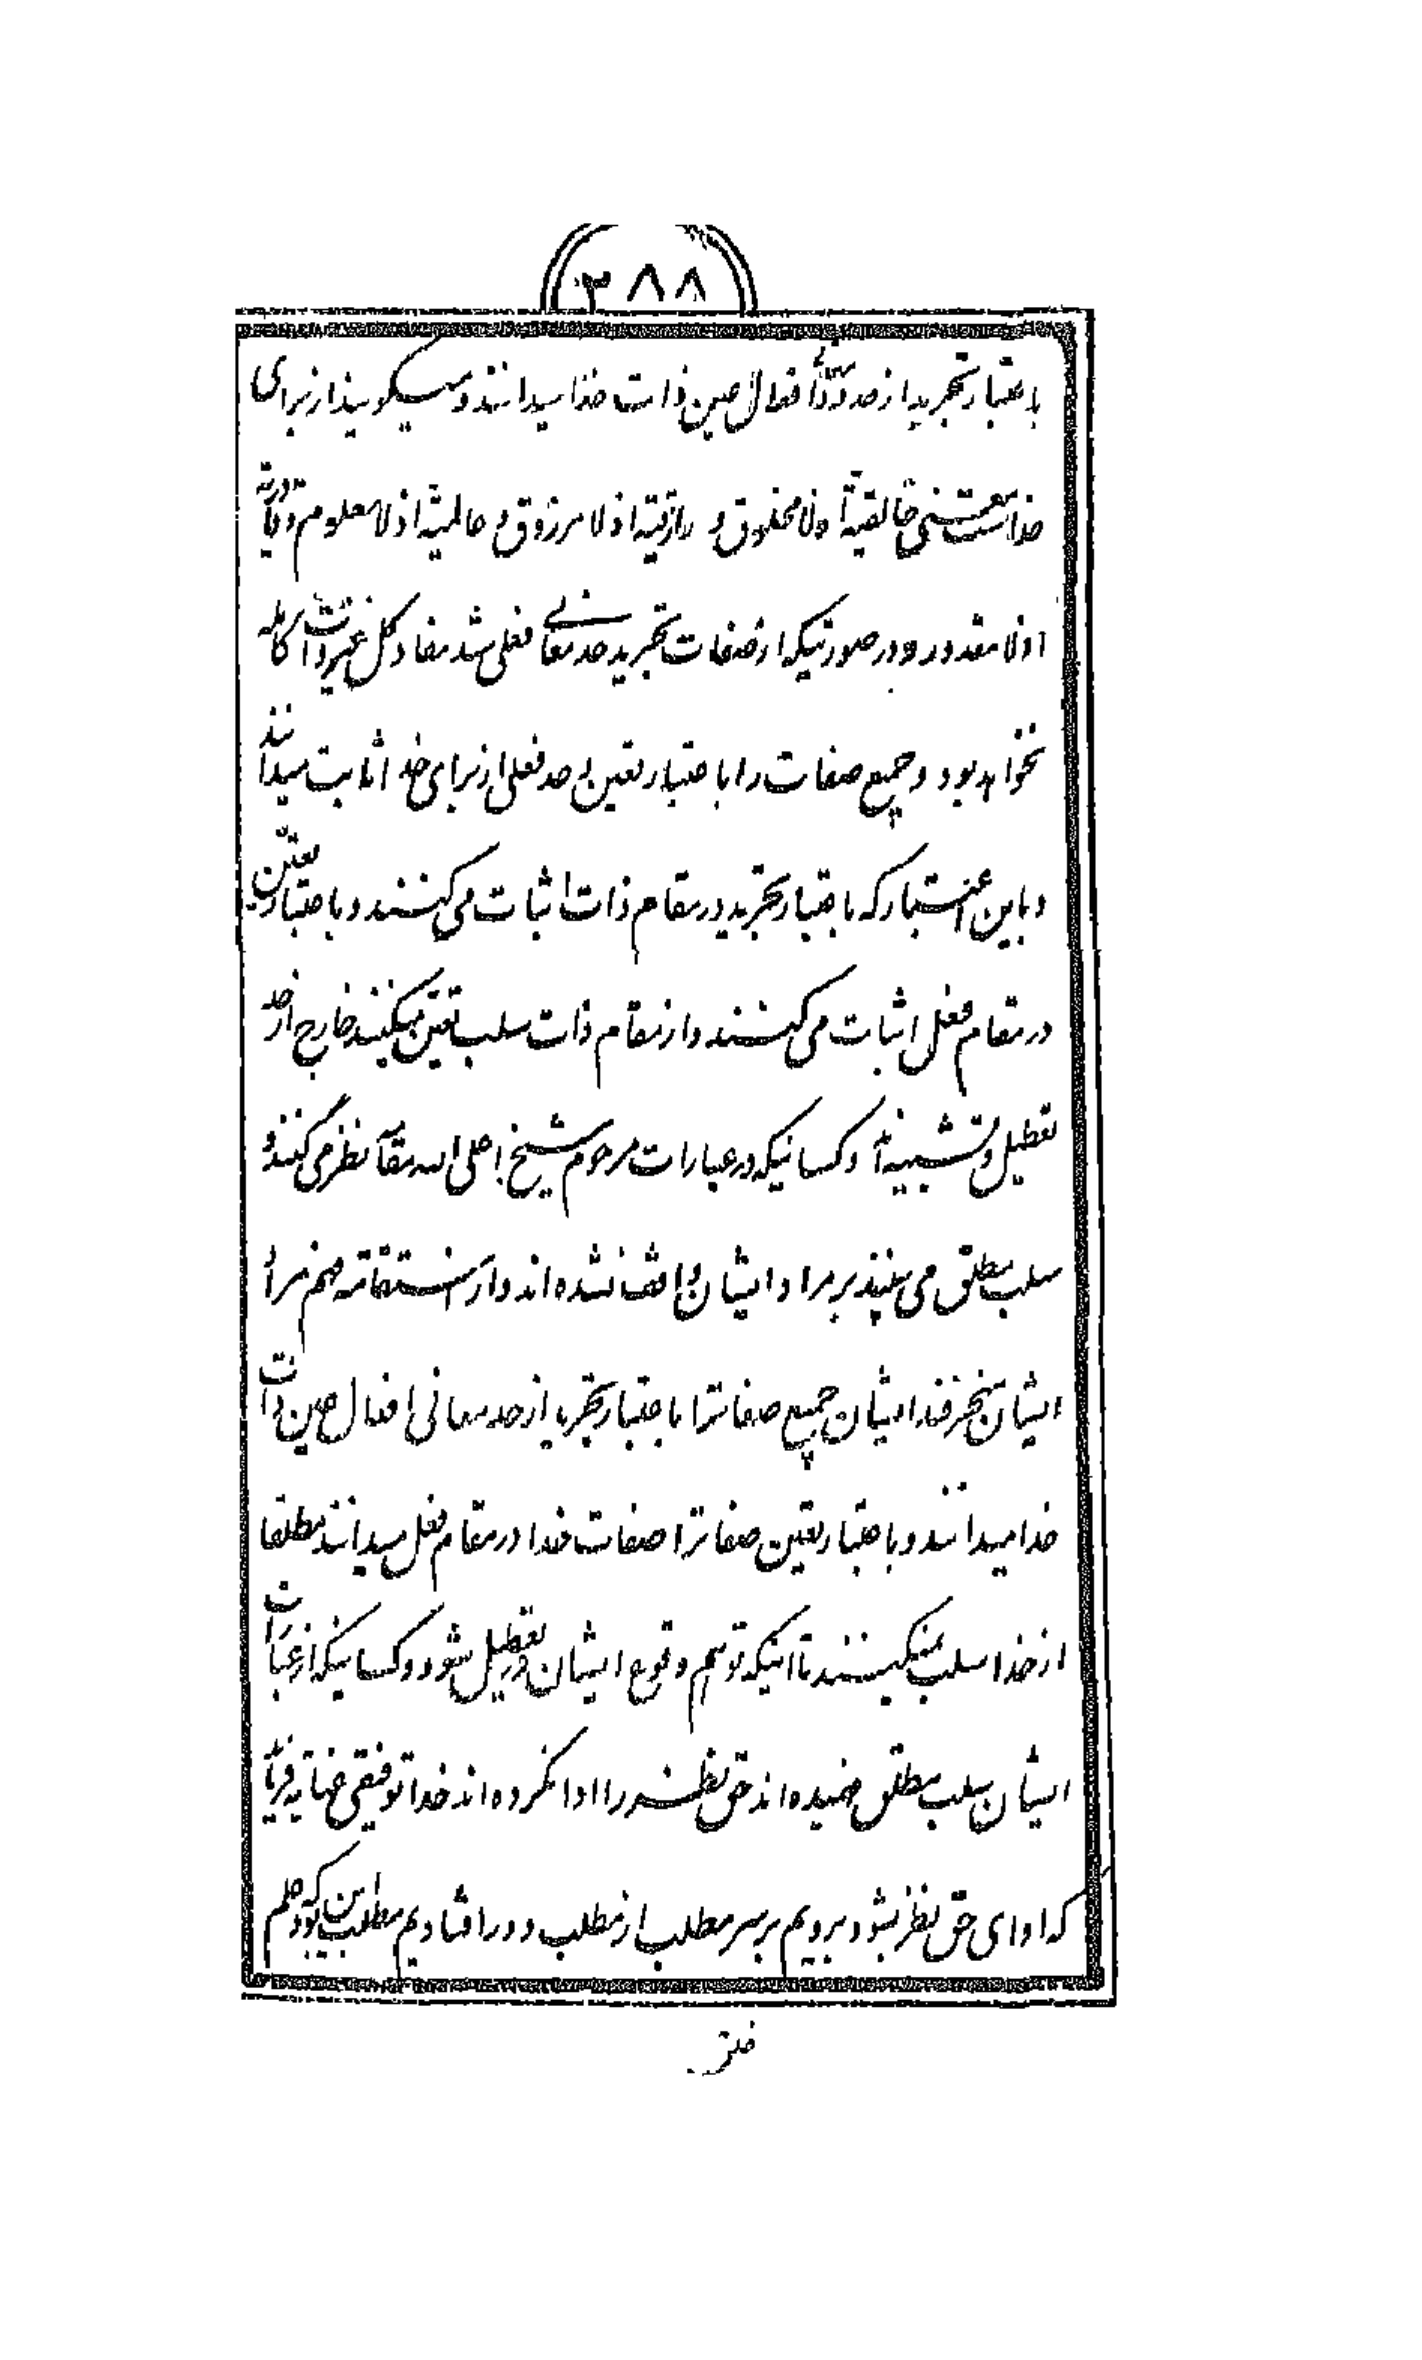 ۳۸۸
باعتبار تجرید از حدود افعال عین ذات خدا میدانند و میگویند از برای
خداست معنی خالقیة اذلا مخلوق و رازقیته اذلا مرزوق و عالمیته اذلا معلوم و قادریته
اذلا مقدور و در صورتیکه از صفات تجرید حد معانی فعلی شد مفاد کل غیر ذات کامله
نخواهد بود و جمیع صفات را باعتبار تعین بحد فعلی از برای خدا ثابت میدانند
و باین اعتبار که باعتبار تجرید در مقام ذات اثبات می کنند و باعتبار تعین
در مقام فعل اثبات می کنند و از مقام ذات سلب تعین میکنند خارج از حد
تعطیل و تشبیه‌اند و کسانیکه در عبارات مرحوم شیخ اعلی الله مقامه نظر می کنند و
سلب مطلق می بینند بر مراد ایشان واقف نشده اند و از استقامه فهم مراد
ایشان منحرفند ایشان جمیع صفاترا باعتبار تجرید از حد معانی افعال عین ذات
خدا میدانند و باعتبار تعین صفاترا صفات خدا در مقام فعل میدانند مطلقا
از خدا سلب نمیکنند تا اینکه توهم وقوع ایشان در تعطیل شود و کسانیکه از عبارات
ایشان سلب مطلق فهمیده اند حق نظر را ادا نکرده اند خدا توفیقی عنایة فرماید
که ادای حق نظر بشود برویم بر سر مطلب از مطلب دور افتادیم مطلب این بود که علم